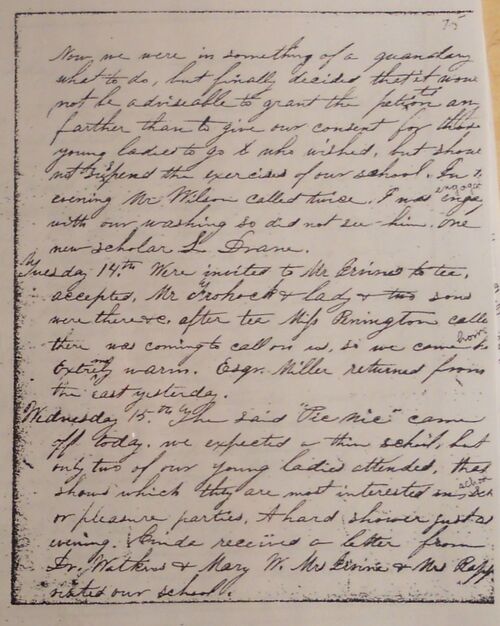 75
Now we were in something of a quandary
what to do, but finally decided that it woul
not be adviseable to grant the petition any
farther than to give our consent for those
young ladies to go & who wished, but shoul
not suspend the exercises of our school. In
evening Mr Wilson called twice. I was engag
with our washing so did not see him. One
new scholar L Drane.
Tuesday 14th Were invited to Mr Ervins to tea,
accepted, Mr & lady & two sons
were there &c. after tea Miss Pinington calle
there was coming to call on us, so we came hom
Extremely warm. Esqr. Miller returned from
the east yesterday.
Wednesday 15th The said "Pic Nic" came
off today. we expected a thin school, but
only two of our young ladies attended, that
shows which they are most interested in, sch
or pleasure parties. A hard shower just a
evening. received a letter from
Dr. Watkins & Mary W. Mr Ervins & Mr Rapp
visited our school.